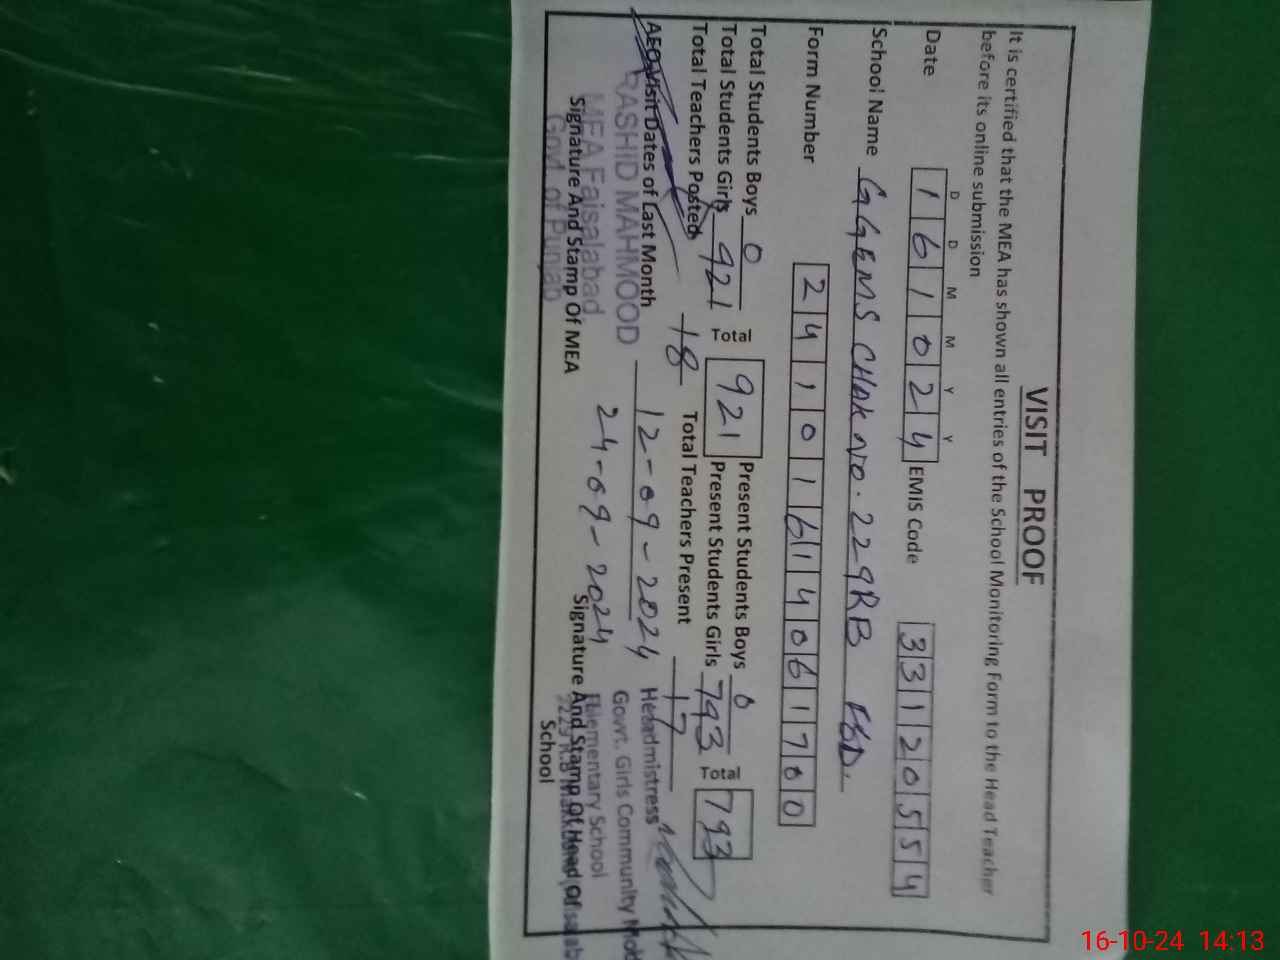 VISIT PROOF
It is certified that the MEA has shown all entries of the School Monitoring Form to the Head Teacher
before its online submission
D D M M Y Y
Date 1 6 1 0 2 4 EMIS Code 3 3 1 2 0 5 5 4
School Name GGEMS CHAK NO. 229RB FSD.
Form Number 2 4 1 0 1 6 1 4 0 6 1 7 0 0
Total Students Boys 0 Total 921 Present Students Boys 0 Total 793
Total Students Girls 921 Present Students Girls 793
Total Teachers Posted 18 Total Teachers Present 17
AEO Visit Dates of Last Month 12-09-2024
24-09-2024
RASHID MAHMOOD
MEA Faisalabad
Govt. of Punjab
Signature And Stamp Of MEA
Headmistress
Govt. Girls Community
Elementary School
Signature And Stamp Of Head Of
School
16-10-24 14:13